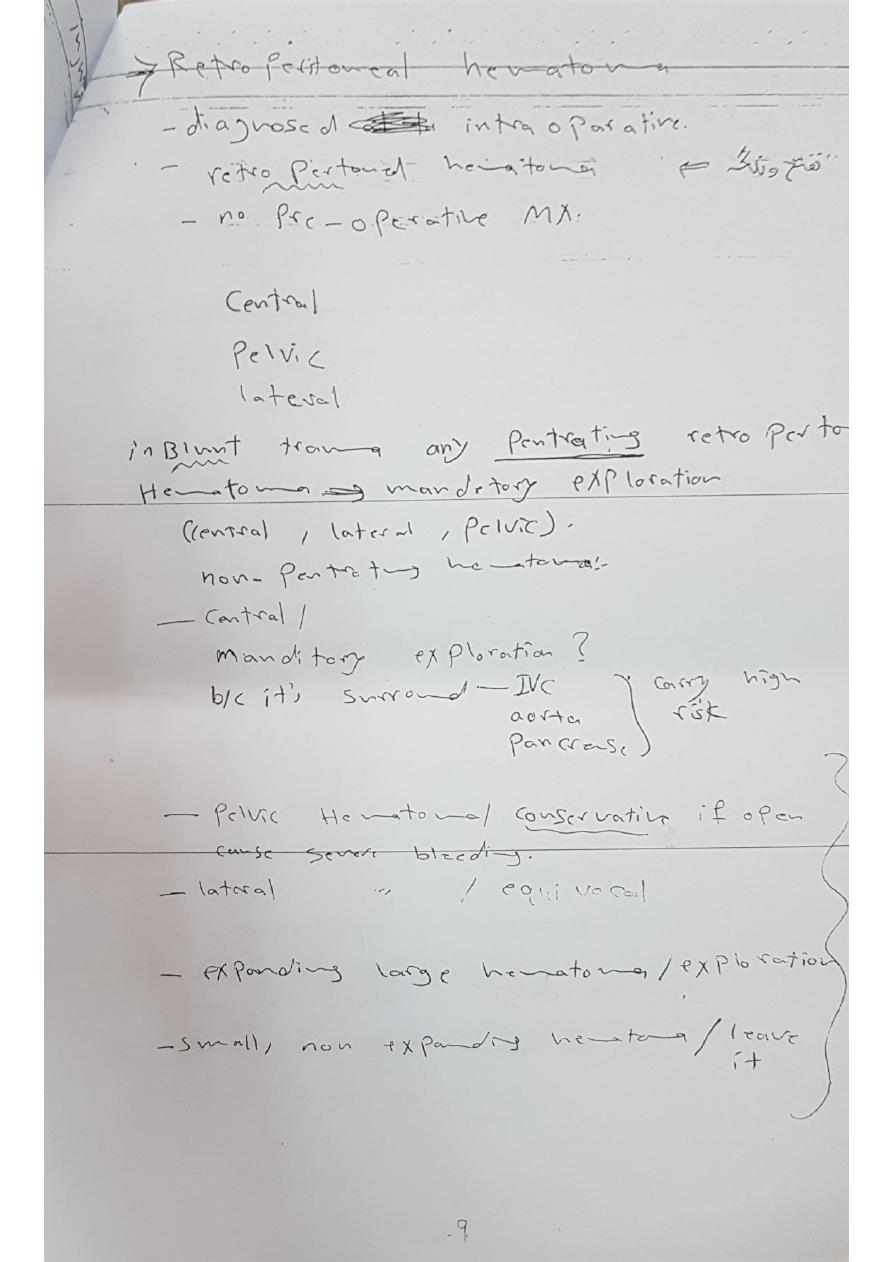 → Retroperitoneal hematoma
- diagnosed intra oparative.
- retro pertoned hematoma ⇐
- no Pre-operative MX.
Central
Pelvic
lateral
in Blunt trauma any Pentrating retro perto
Hematoma ⇒ mandetory exploration
(central, lateral, Pelvic).
non-Pentrating hematoma:-
- Central /
manditory exploration?
b/c it's surround - IVC
aorta
pancrease
carry high
risk
- Pelvic Hematoma / conservative if open
cause severe bleeding.
- lateral " / equivocal
- expanding large hematoma / exploration
- small, non expanding hematoma / leave
it
9